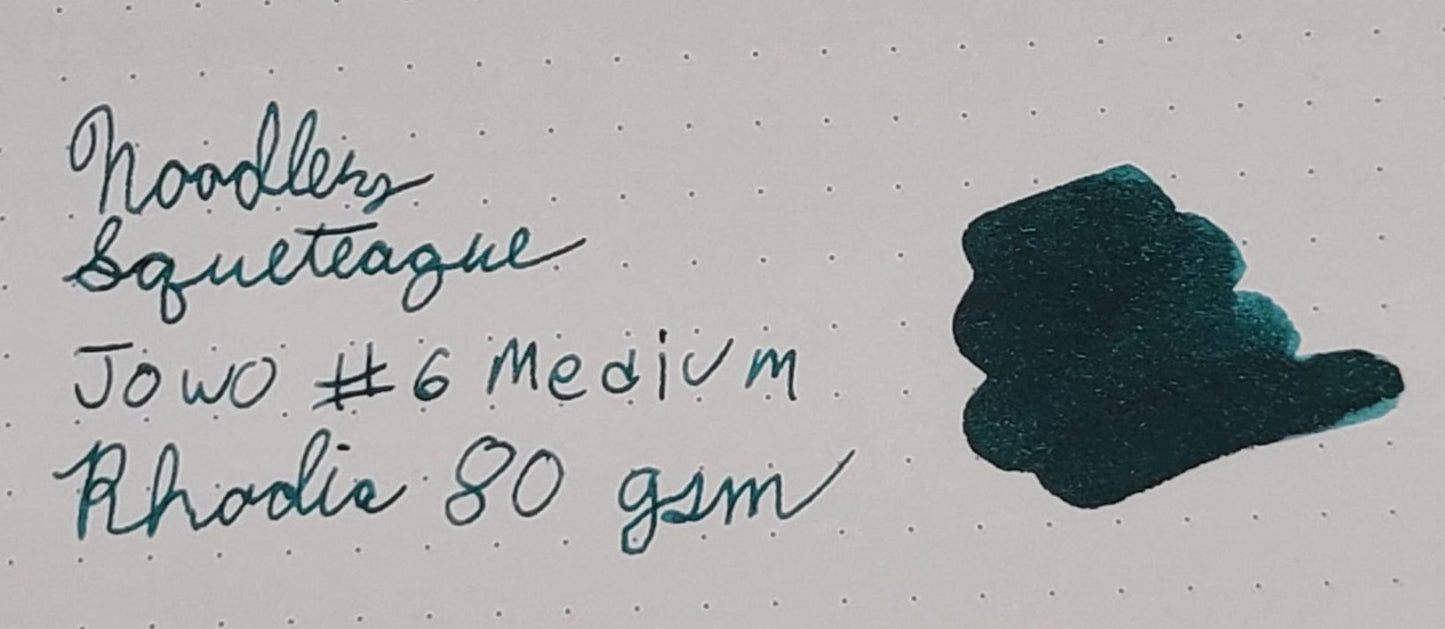 Noodlers
Squeteague
Jowo #6 Medium
Rhodia 80 gsm